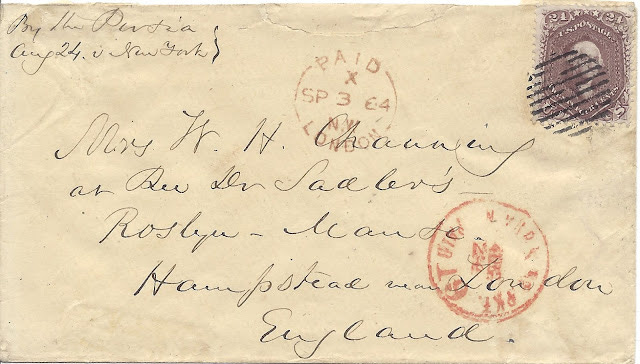 By the Persia
Aug 24. v New York
24 24
U.S. POSTAGE
PAID
X
SP 3 64
N.W
LONDON
Mrs W. H. Channing
at Rev Dr Sadler's
Rosslyn - Manse.
Hampstead near London
England.